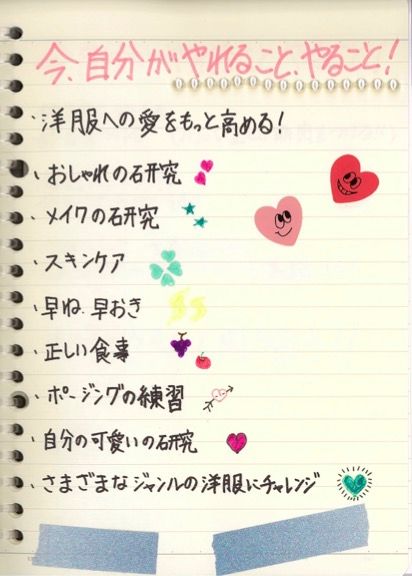 今、自分がやれること、やること!
・洋服への愛をもっと高める!
・おしゃれの研究
・メイクの研究
・スキンケア
・早ね、早おき
・正しい食事
・ポージングの練習
・自分の可愛いの研究
・さまざまなジャンルの洋服にチャレンジ